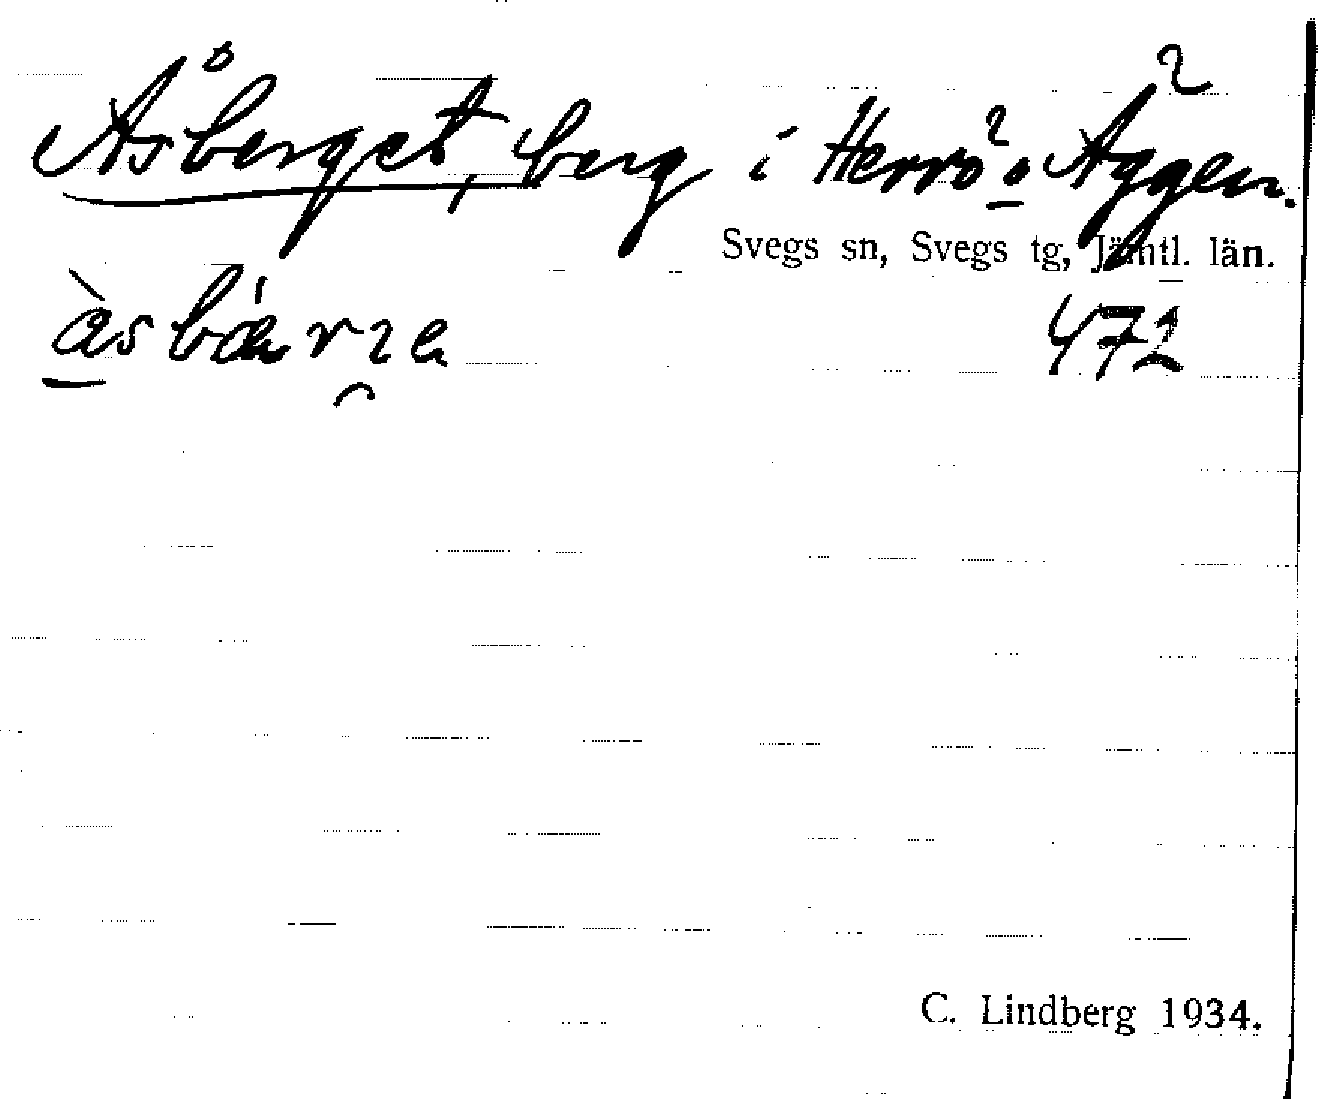 Åsberget, berg i Herrö o Äggen.
Svegs sn, Svegs tg, Jämtl. län.
àsbárza 472
C. Lindberg 1934.